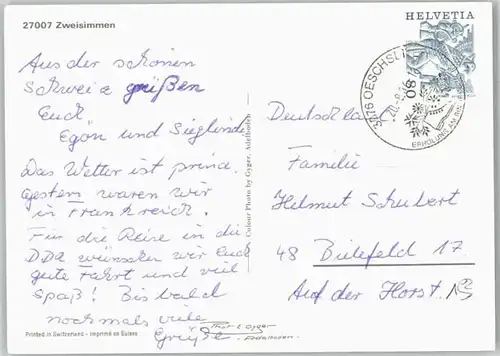 27007 Zweisimmen
Aus der schönen
Schweiz grüßen
Euch
Egon und Sieglinde
Das Wetter ist prima.
Gestern waren wir
in Frankreich.
Für die Reise in die
DDR wünschen wir Euch
gute Fahrt und viel
Spaß! Bis bald
nochmals viele
Grüße
Printed in Switzerland - Imprimé en Suisse
Colour Photo by Gyger, Adelboden
Phot. E. Gyger
Adelboden
HELVETIA
80
OESCHS
ERHOLUNG AM
Deutschland
Familie
Helmut Schubert
48 Bielefeld 17
Auf der Horst